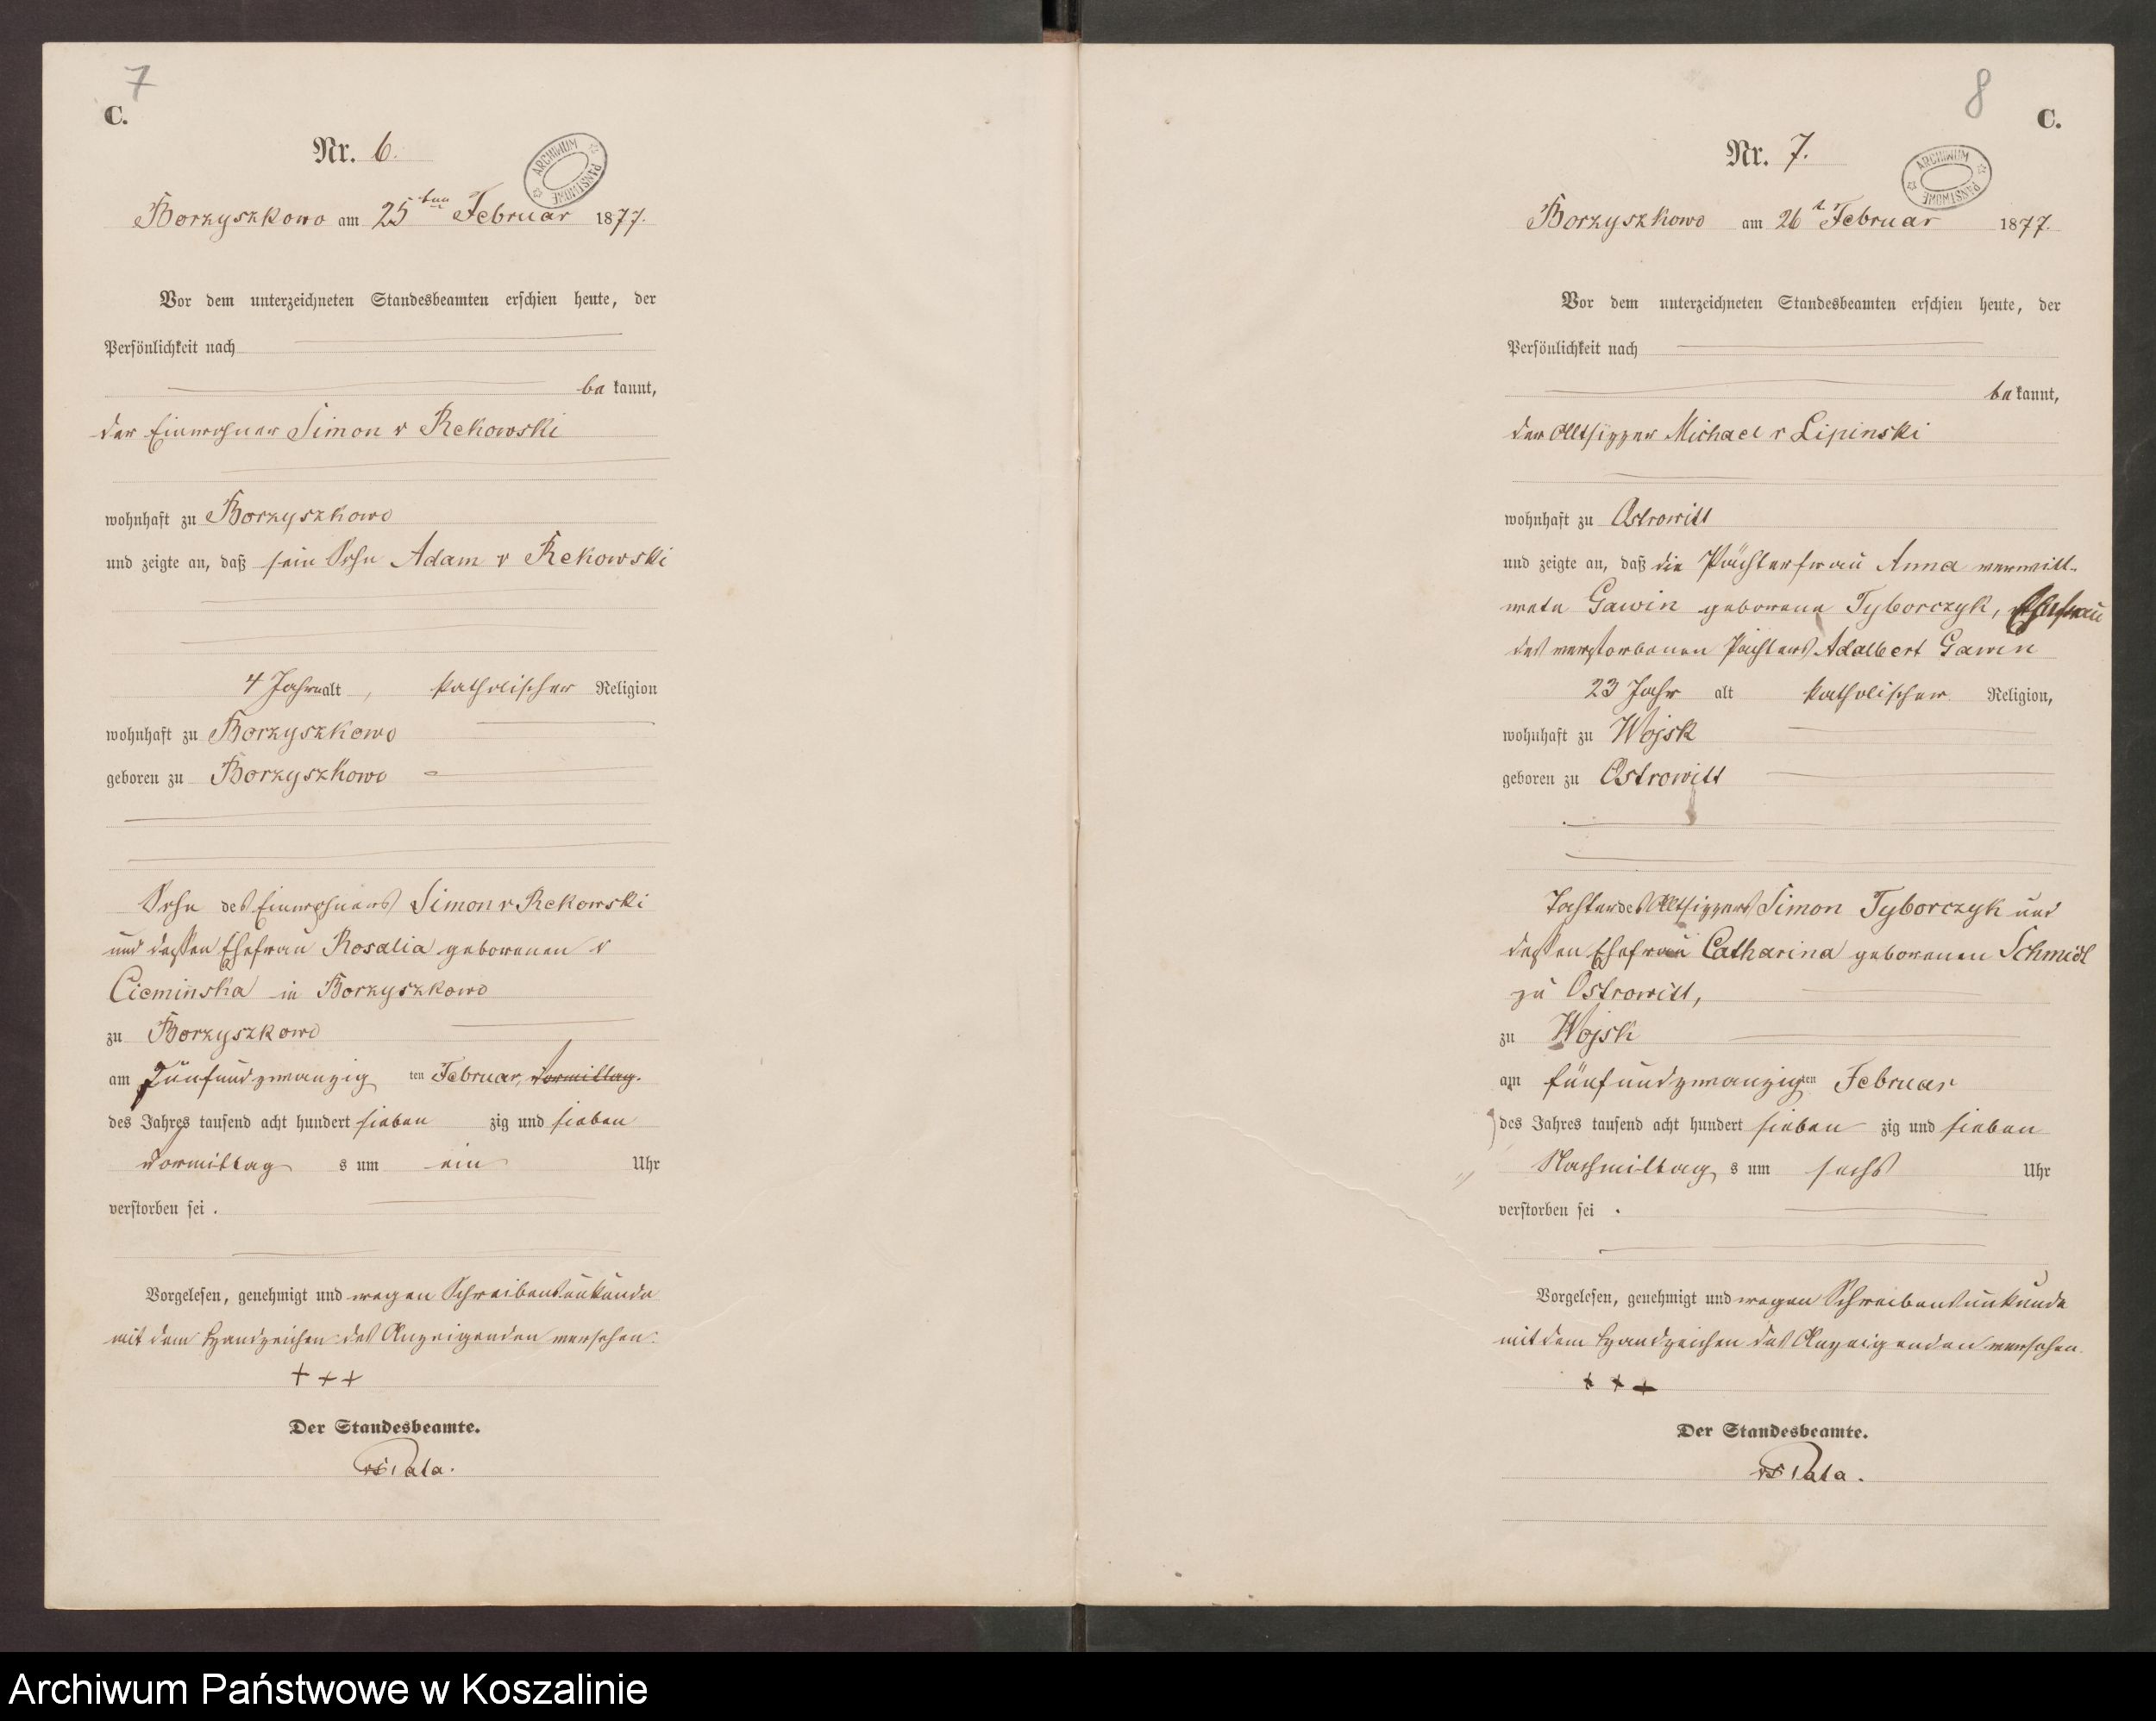 7
C.
Nr. 6.
ARCHIWUM PAŃSTWOWE
Borzyszkowo am 25ten Februar 1877.
Vor dem unterzeichneten Standesbeamten erschien heute, der
Persönlichkeit nach
be kannt,
der Einwohner Simon v Rekowski
wohnhaft zu Borzyszkowo
und zeigte an, daß sein Sohn Adam v Rekowski
4 Jahre alt, katholischer Religion
wohnhaft zu Borzyszkowo
geboren zu Borzyszkowo
Sohn des Einwohners Simon v Rekowski
und dessen Ehefrau Rosalia geborenen v
Cieminska in Borzyszkowo
zu Borzyszkowo
am Fünfundzwanzig ten Februar, Vormittag.
des Jahres tausend acht hundert sieben zig und sieben
Vormittag s um ein Uhr
verstorben sei .
Vorgelesen, genehmigt und wegen Schreibensunkunde
mit dem Handzeichen des Anzeigenden versehen.
+ + +
Der Standesbeamte.
Pala.
8
C.
Nr. 7.
ARCHIWUM PAŃSTWOWE
Borzyszkowo am 26t Februar 1877.
Vor dem unterzeichneten Standesbeamten erschien heute, der
Persönlichkeit nach
be kannt,
der Altsitzer Michael v Lipinski
wohnhaft zu Ostrowitt
und zeigte an, daß die Pächterfrau Anna verwitt-
wete Gawin geborene Tyborczyk, Ehefrau
des verstorbenen Pächters Adalbert Gawin
23 Jahr alt katholischer Religion,
wohnhaft zu Wojsk
geboren zu Ostrowitt
Tochter des Altsitzers Simon Tyborczyk und
dessen Ehefrau Catharina geborenen Schmidt
zu Ostrowitt,
zu Wojsk
am fünfundzwanzigten Februar
des Jahres tausend acht hundert sieben zig und sieben
Nachmittag s um sechs Uhr
verstorben sei .
Vorgelesen, genehmigt und wegen Schreibensunkunde
mit dem Handzeichen des Anzeigenden versehen.
+ + +
Der Standesbeamte.
Pala.
Archiwum Państwowe w Koszalinie